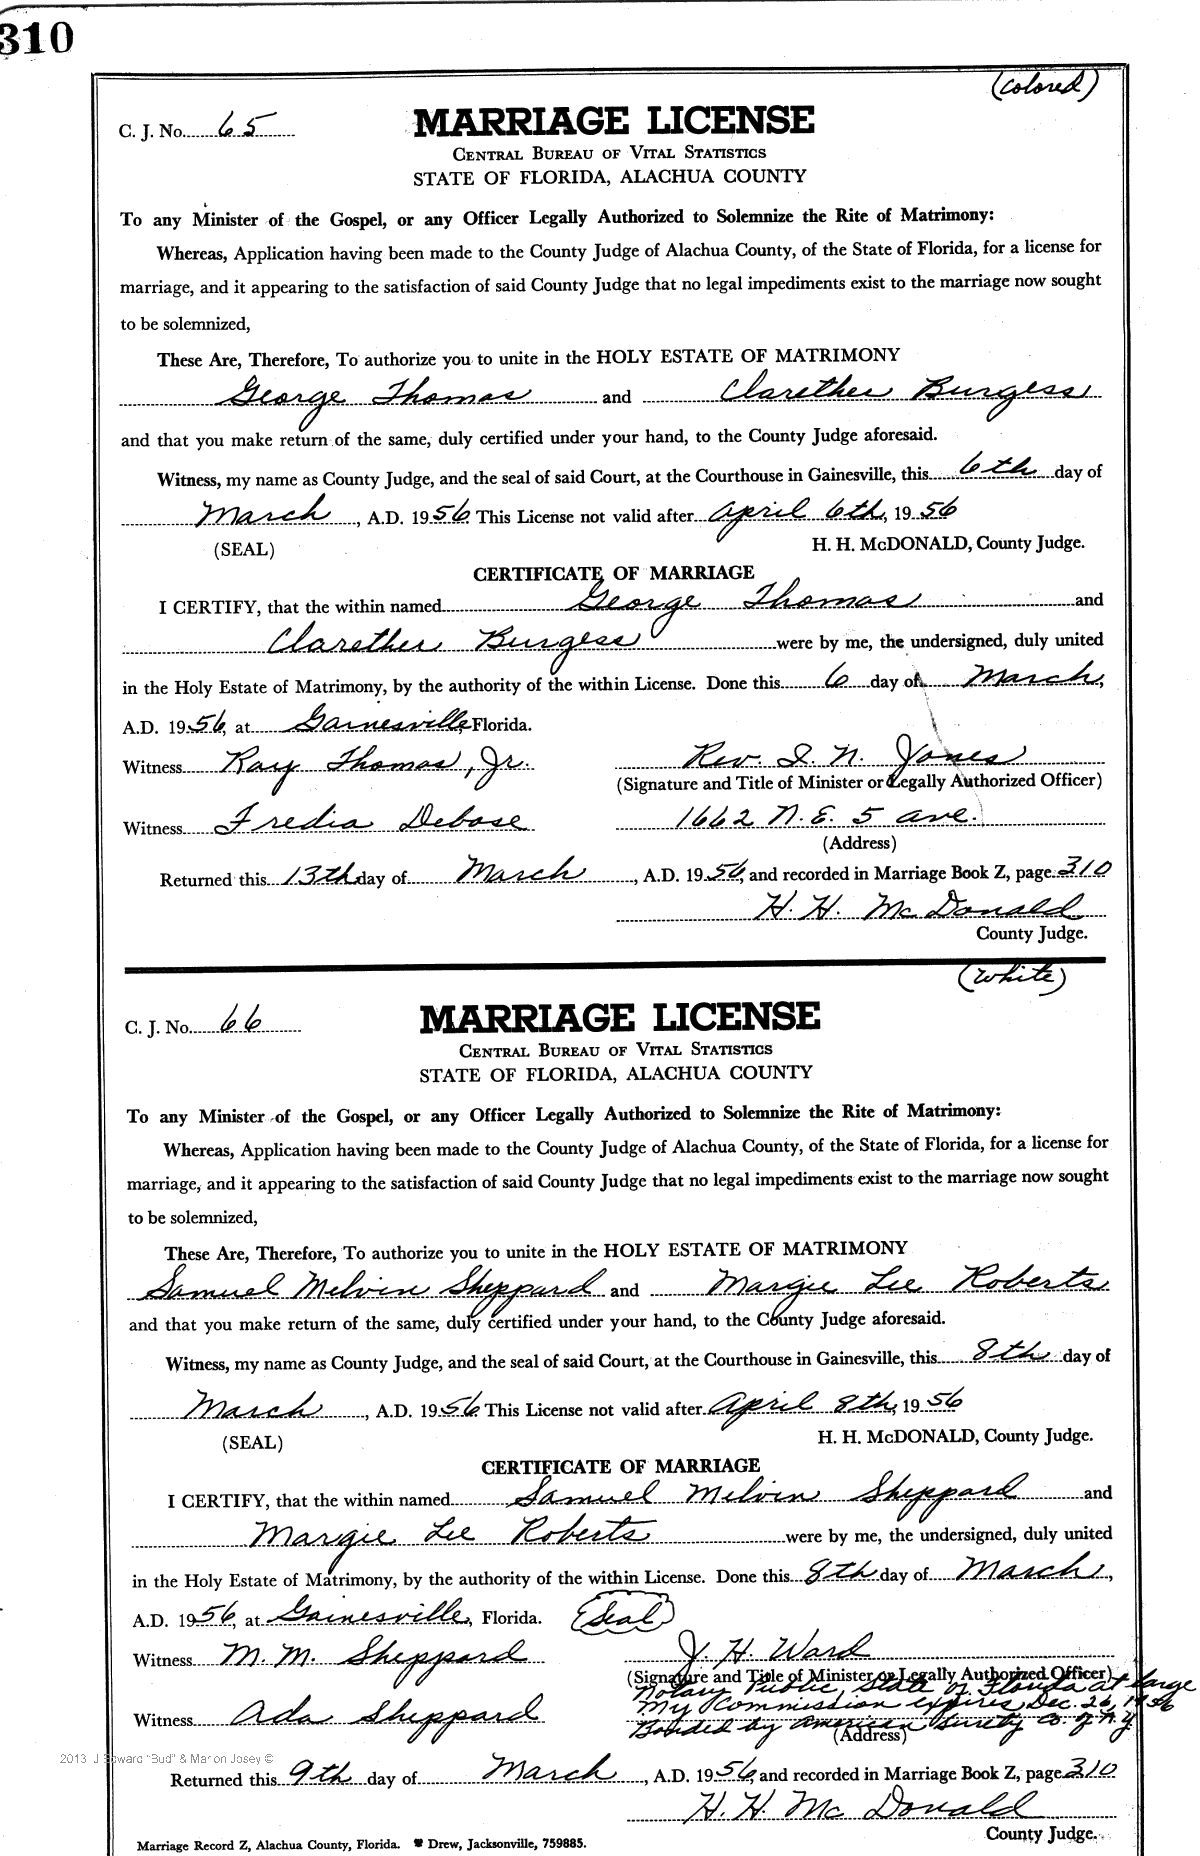 310
(Colored)
C. J. No. 65
MARRIAGE LICENSE
CENTRAL BUREAU OF VITAL STATISTICS
STATE OF FLORIDA, ALACHUA COUNTY
To any Minister of the Gospel, or any Officer Legally Authorized to Solemnize the Rite of Matrimony:
Whereas, Application having been made to the County Judge of Alachua County, of the State of Florida, for a license for
marriage, and it appearing to the satisfaction of said County Judge that no legal impediments exist to the marriage now sought
to be solemnized,
These Are, Therefore, To authorize you to unite in the HOLY ESTATE OF MATRIMONY
George Thomas and Clarether Burgess
and that you make return of the same, duly certified under your hand, to the County Judge aforesaid.
Witness, my name as County Judge, and the seal of said Court, at the Courthouse in Gainesville, this 6th day of
March, A.D. 1956. This License not valid after April 6th, 1956
(SEAL) H. H. McDONALD, County Judge.
CERTIFICATE OF MARRIAGE
I CERTIFY, that the within named George Thomas and
Clarether Burgess were by me, the undersigned, duly united
in the Holy Estate of Matrimony, by the authority of the within License. Done this 6 day of March,
A.D. 1956, at Gainesville, Florida.
Witness Ray Thomas, Jr. Rev. I. N. Jones
(Signature and Title of Minister or Legally Authorized Officer)
Witness Fredia Debose 1662 N. E. 5 ave.
(Address)
Returned this 13th day of March, A.D. 1956, and recorded in Marriage Book Z, page 310
H. H. McDonald
County Judge.
(White)
C. J. No. 66
MARRIAGE LICENSE
CENTRAL BUREAU OF VITAL STATISTICS
STATE OF FLORIDA, ALACHUA COUNTY
To any Minister of the Gospel, or any Officer Legally Authorized to Solemnize the Rite of Matrimony:
Whereas, Application having been made to the County Judge of Alachua County, of the State of Florida, for a license for
marriage, and it appearing to the satisfaction of said County Judge that no legal impediments exist to the marriage now sought
to be solemnized,
These Are, Therefore, To authorize you to unite in the HOLY ESTATE OF MATRIMONY
Samuel Melvin Sheppard and Margie Lee Roberts
and that you make return of the same, duly certified under your hand, to the County Judge aforesaid.
Witness, my name as County Judge, and the seal of said Court, at the Courthouse in Gainesville, this 8th day of
March, A.D. 1956. This License not valid after April 8th, 1956
(SEAL) H. H. McDONALD, County Judge.
CERTIFICATE OF MARRIAGE
I CERTIFY, that the within named Samuel Melvin Sheppard and
Margie Lee Roberts were by me, the undersigned, duly united
in the Holy Estate of Matrimony, by the authority of the within License. Done this 8th day of March,
A.D. 1956, at Gainesville, Florida. (Seal)
Witness M. M. Sheppard J. H. Ward
(Signature and Title of Minister or Legally Authorized Officer)
Notary Public, State of Florida at Large
My Commission expires Dec. 26, 1956
Witness Ada Sheppard Bonded by American Surety Co. of N.Y.
(Address)
2013 J Edward "Bud" & Marion Josey ©
Returned this 9th day of March, A.D. 1956, and recorded in Marriage Book Z, page 310
H. H. McDonald
County Judge.
Marriage Record Z, Alachua County, Florida. Drew, Jacksonville, 759885.